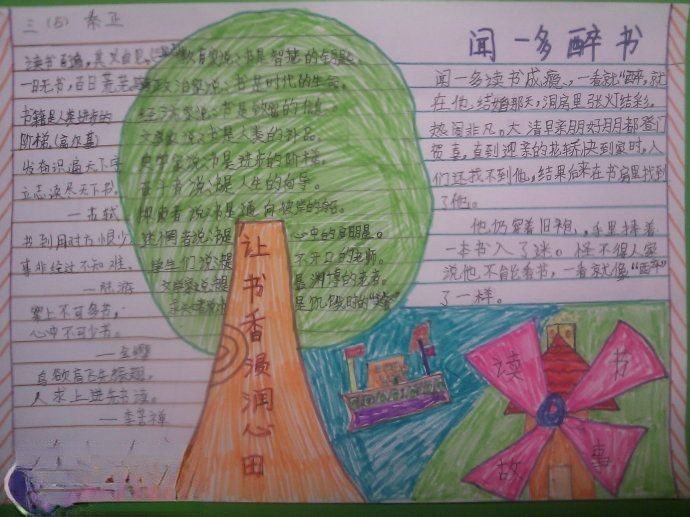 三（5） 秦正
读书百遍，其义自见。
一日无书，百日荒芜。
书籍是人类进步的
阶梯（高尔基）
发奋识遍天下字
立志读尽天下书。
——苏轼
书到用时方恨少
事非经过不知难。
——陆游
案上不可多书，
心中不可少书。
——金缨
鸟欲高飞先振翅，
人求上进先读书。
——李苦禅
教育家说：书是智慧的
政治家说：书是时代的生命。
经济家说：书是致富的信息
文学家说：书是人类的补品。
史学家说：书是进步的阶梯。
奋斗者说：书是人生的向导。
探索者说：书是通向彼岸的
迷惘者说：书是心中的启明星。
学生们说：书是不开口的老师。
是渊博的老者。
是饥饿时的
让书香浸润心田
闻一多醉书
闻一多读书成瘾，一看就“醉，就
在他结婚那天，洞房里张灯结彩，
热闹非凡。大清早亲朋好朋都登门
贺喜，直到迎亲的花轿快到家时，人
们还找不到他，结果后来在书房里找到
了他。
他仍穿着旧袍，手里捧着
一本书入了迷。怪不得人家
说他不能看书，一看就像“醉”
了一样。
读书
故事